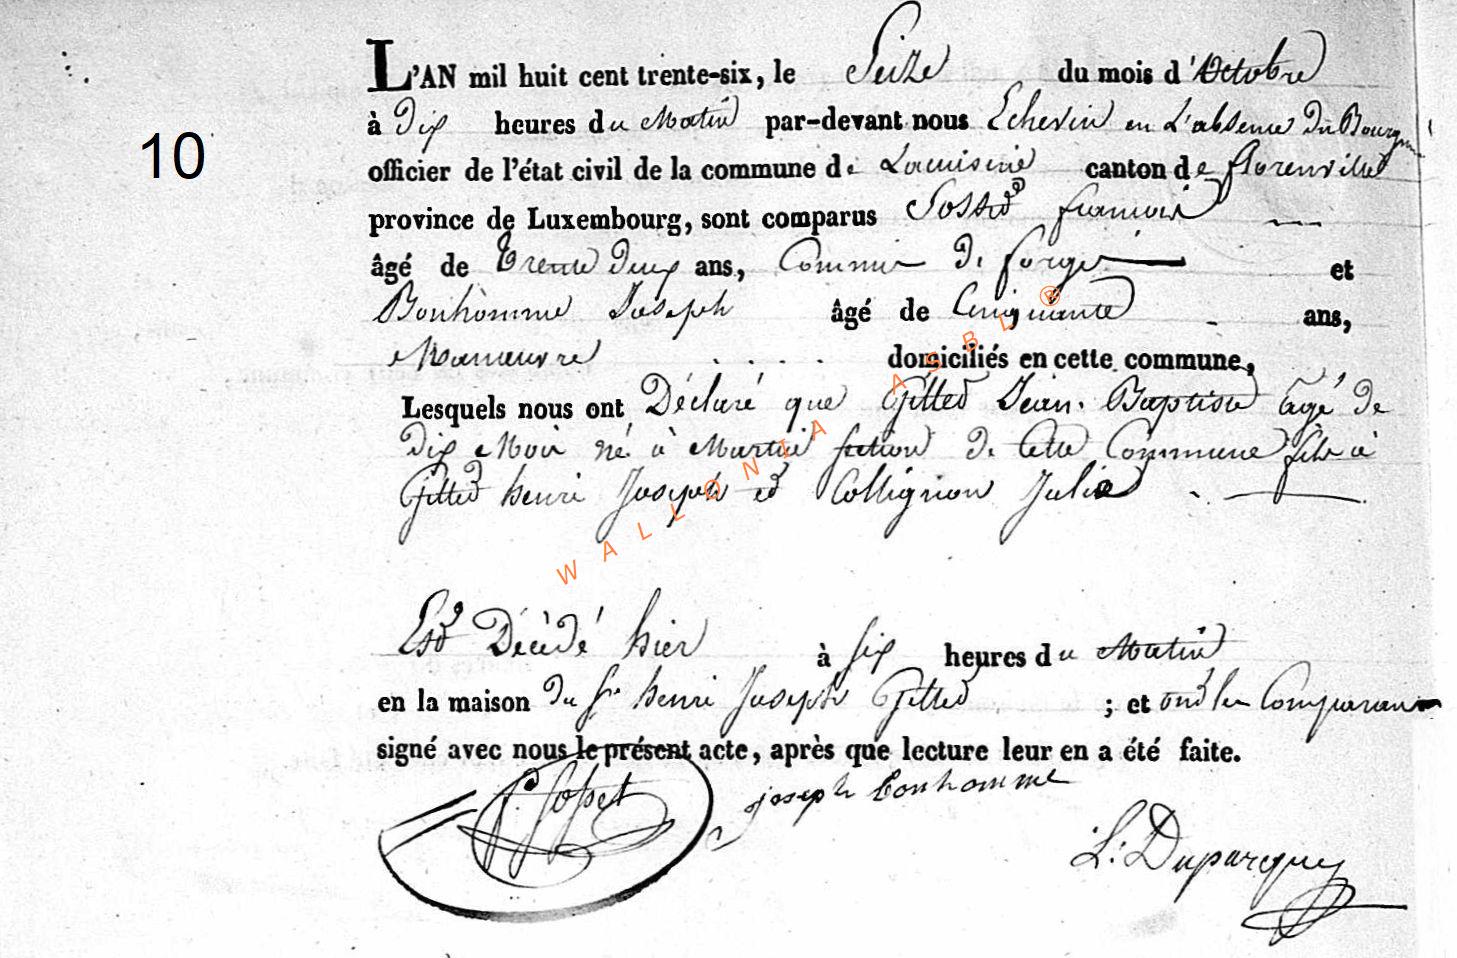 L'AN mil huit cent trente-six, le Seize du mois d'Octobre
10
à Dix heures du Matin par-devant nous Echevin en L'absence Du Bourgm
officier de l'état civil de la commune de Lacuisine canton de florenville
province de Luxembourg, sont comparus Josset françois
âgé de Trente Deux ans, Commis De forges et
Bonhomme Joseph âgé de Cinquante ans,
Manœuvre .... domiciliés en cette commune,
Lesquels nous ont Déclaré que Gillet Jean Baptiste agé De
Dix Mois né à Martué section De Cette Commune fils à
Gillet henri Joseph et Collignon Julie
WALLONIA ASBL ®
Est Décédé hier à six heures du Matin
en la maison du Sr henri Joseph Gillet ; et ont les Comparans
signé avec nous le présent acte, après que lecture leur en a été faite.
f. Josset joseph bonhomme
L: Duparquy